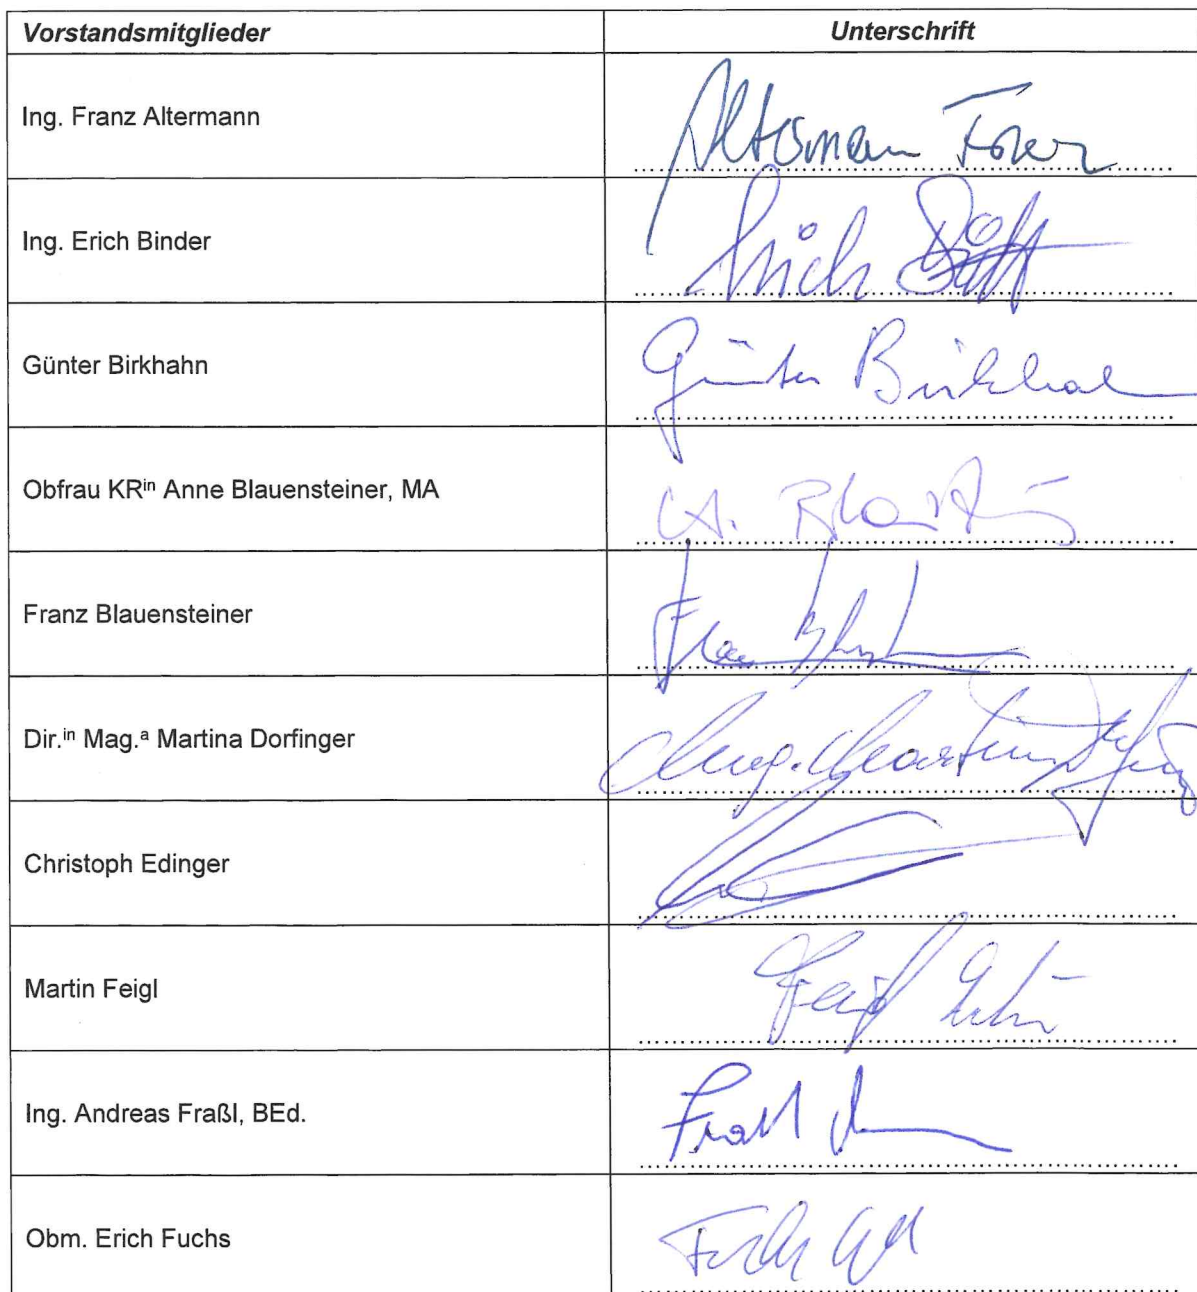 Vorstandsmitglieder Unterschrift
Ing. Franz Altermann Altermann Franz
Ing. Erich Binder Erich
Günter Birkhahn Günter Birkhahn
Obfrau KRⁱⁿ Anne Blauensteiner, MA A.
Franz Blauensteiner Franz
Dir.ⁱⁿ Mag.ᵃ Martina Dorfinger Mag. Martina
Christoph Edinger
Martin Feigl Feigl
Ing. Andreas Fraßl, BEd. Fraßl
Obm. Erich Fuchs Fuchs